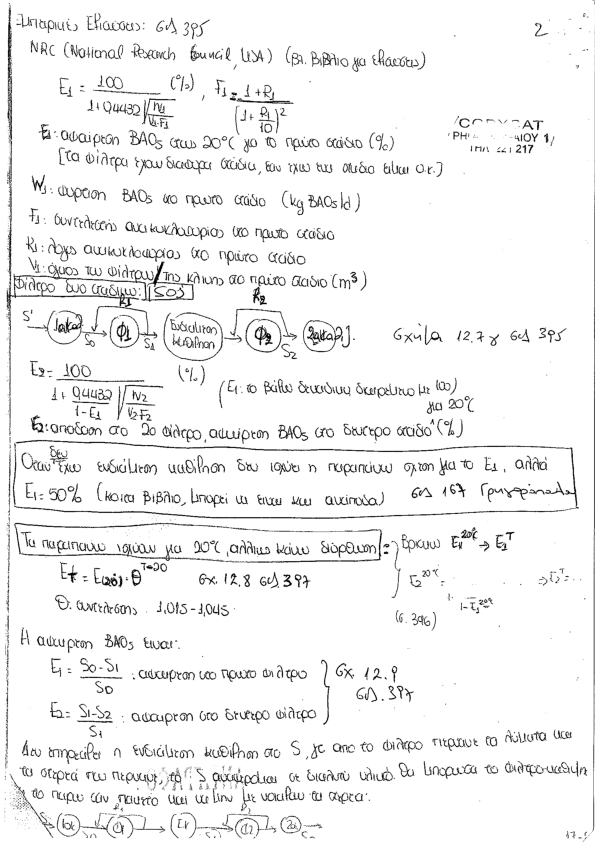 Εμπειρικές Εξισώσεις: σελ 395
2
NRC (National Research Council, USA) (βλ. βιβλίο για εξισώσεις)
E1 = 100 / (1 + 0,4432 √(W1 / V1·F1)) (%) , F1 = (1 + R1) / (1 + R1/10)²
E1: αφαίρεση BAO5 στους 20°C για το πρώτο στάδιο (%)
[Τα φίλτρα έχουν διάφορα στάδια, εαν έχω ένα στάδιο είμαι ο.κ.]
217
W1: φόρτιση BAO5 στο πρώτο στάδιο (kg BAO5/d)
F1: συντελεστής ανακυκλοφορίας στο πρώτο στάδιο
R1: λόγος ανακυκλοφορίας στο πρώτο στάδιο
V1: όγκος του φίλτρου/της κλίνης στο πρώτο στάδιο (m³)
Φίλτρο δυο σταδίων: SOS
R1 R2
S' S0 Φ1 S1 Ενδιάμεση καθίζηση Φ2 S2 Σχήμα 12.7γ σελ 395
E2 = 100 / (1 + 0,4432/(1-E1) √(W2 / V2·F2)) (%)
(E1: το βάζω δεκαδικό διαιρεμένο με 100)
για 20°C
E2: απόδοση στο 2ο φίλτρο, αφαίρεση BAO5 στο δεύτερο στάδιο (%)
Όταν δεν έχω ενδιάμεση καθίζηση δεν ισχύει η παραπάνω σχέση για το E1, αλλά
E1 = 50% (κοιτα βιβλίο, μπορεί να είναι και ανάποδα) σελ 167
Τα παραπάνω ισχύουν για 20°C, αλλιώς κάνω διόρθωση:
Βρίσκω E1^20°C → E1^T
Et = E(20)·Θ^T-20 σχ. 12.8 σελ. 397
E2^20°C =
1-E1^20°C
Θ: συντελεστής 1,015-1,045
(σ. 396)
Η αφαίρεση BAO5 είναι:
E1 = (S0-S1) / S0 : αφαίρεση στο πρώτο φίλτρο
Σχ. 12.9
σελ. 397
E2 = (S1-S2) / S1 : αφαίρεση στο δεύτερο φίλτρο
Δεν επηρεάζει η ενδιάμεση καθίζηση στο S, γτ από το φίλτρο περνάνε τα λύματα και
τα στερεά που περνάνε, το S αναφέρεται σε διαλυτό υλικό. Θα μπορούσα το φίλτρο-καθίζηση
να το πάρω σαν πακέτο και να μην με νοιάζουν τα στερεά: